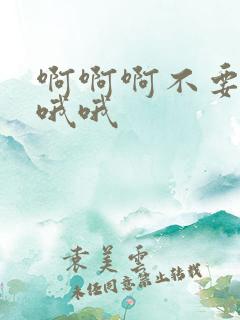 啊啊啊不要
哦哦
袁美雲
未经同意禁止转载